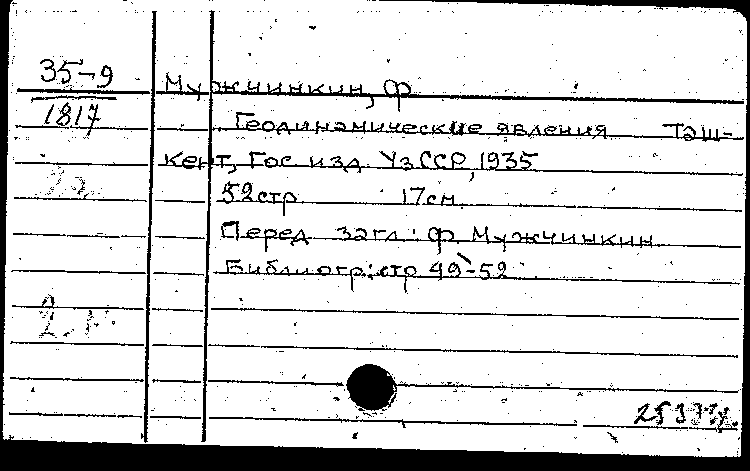 35-9
1817
Мужчинкин, Ф.
Геодинамические явления Таш-
кент, Гос. изд. УзССР, 1935
52стр. 17см.
Перед загл.: Ф. Мужчинкин.
Библиогр.: стр 49-52.